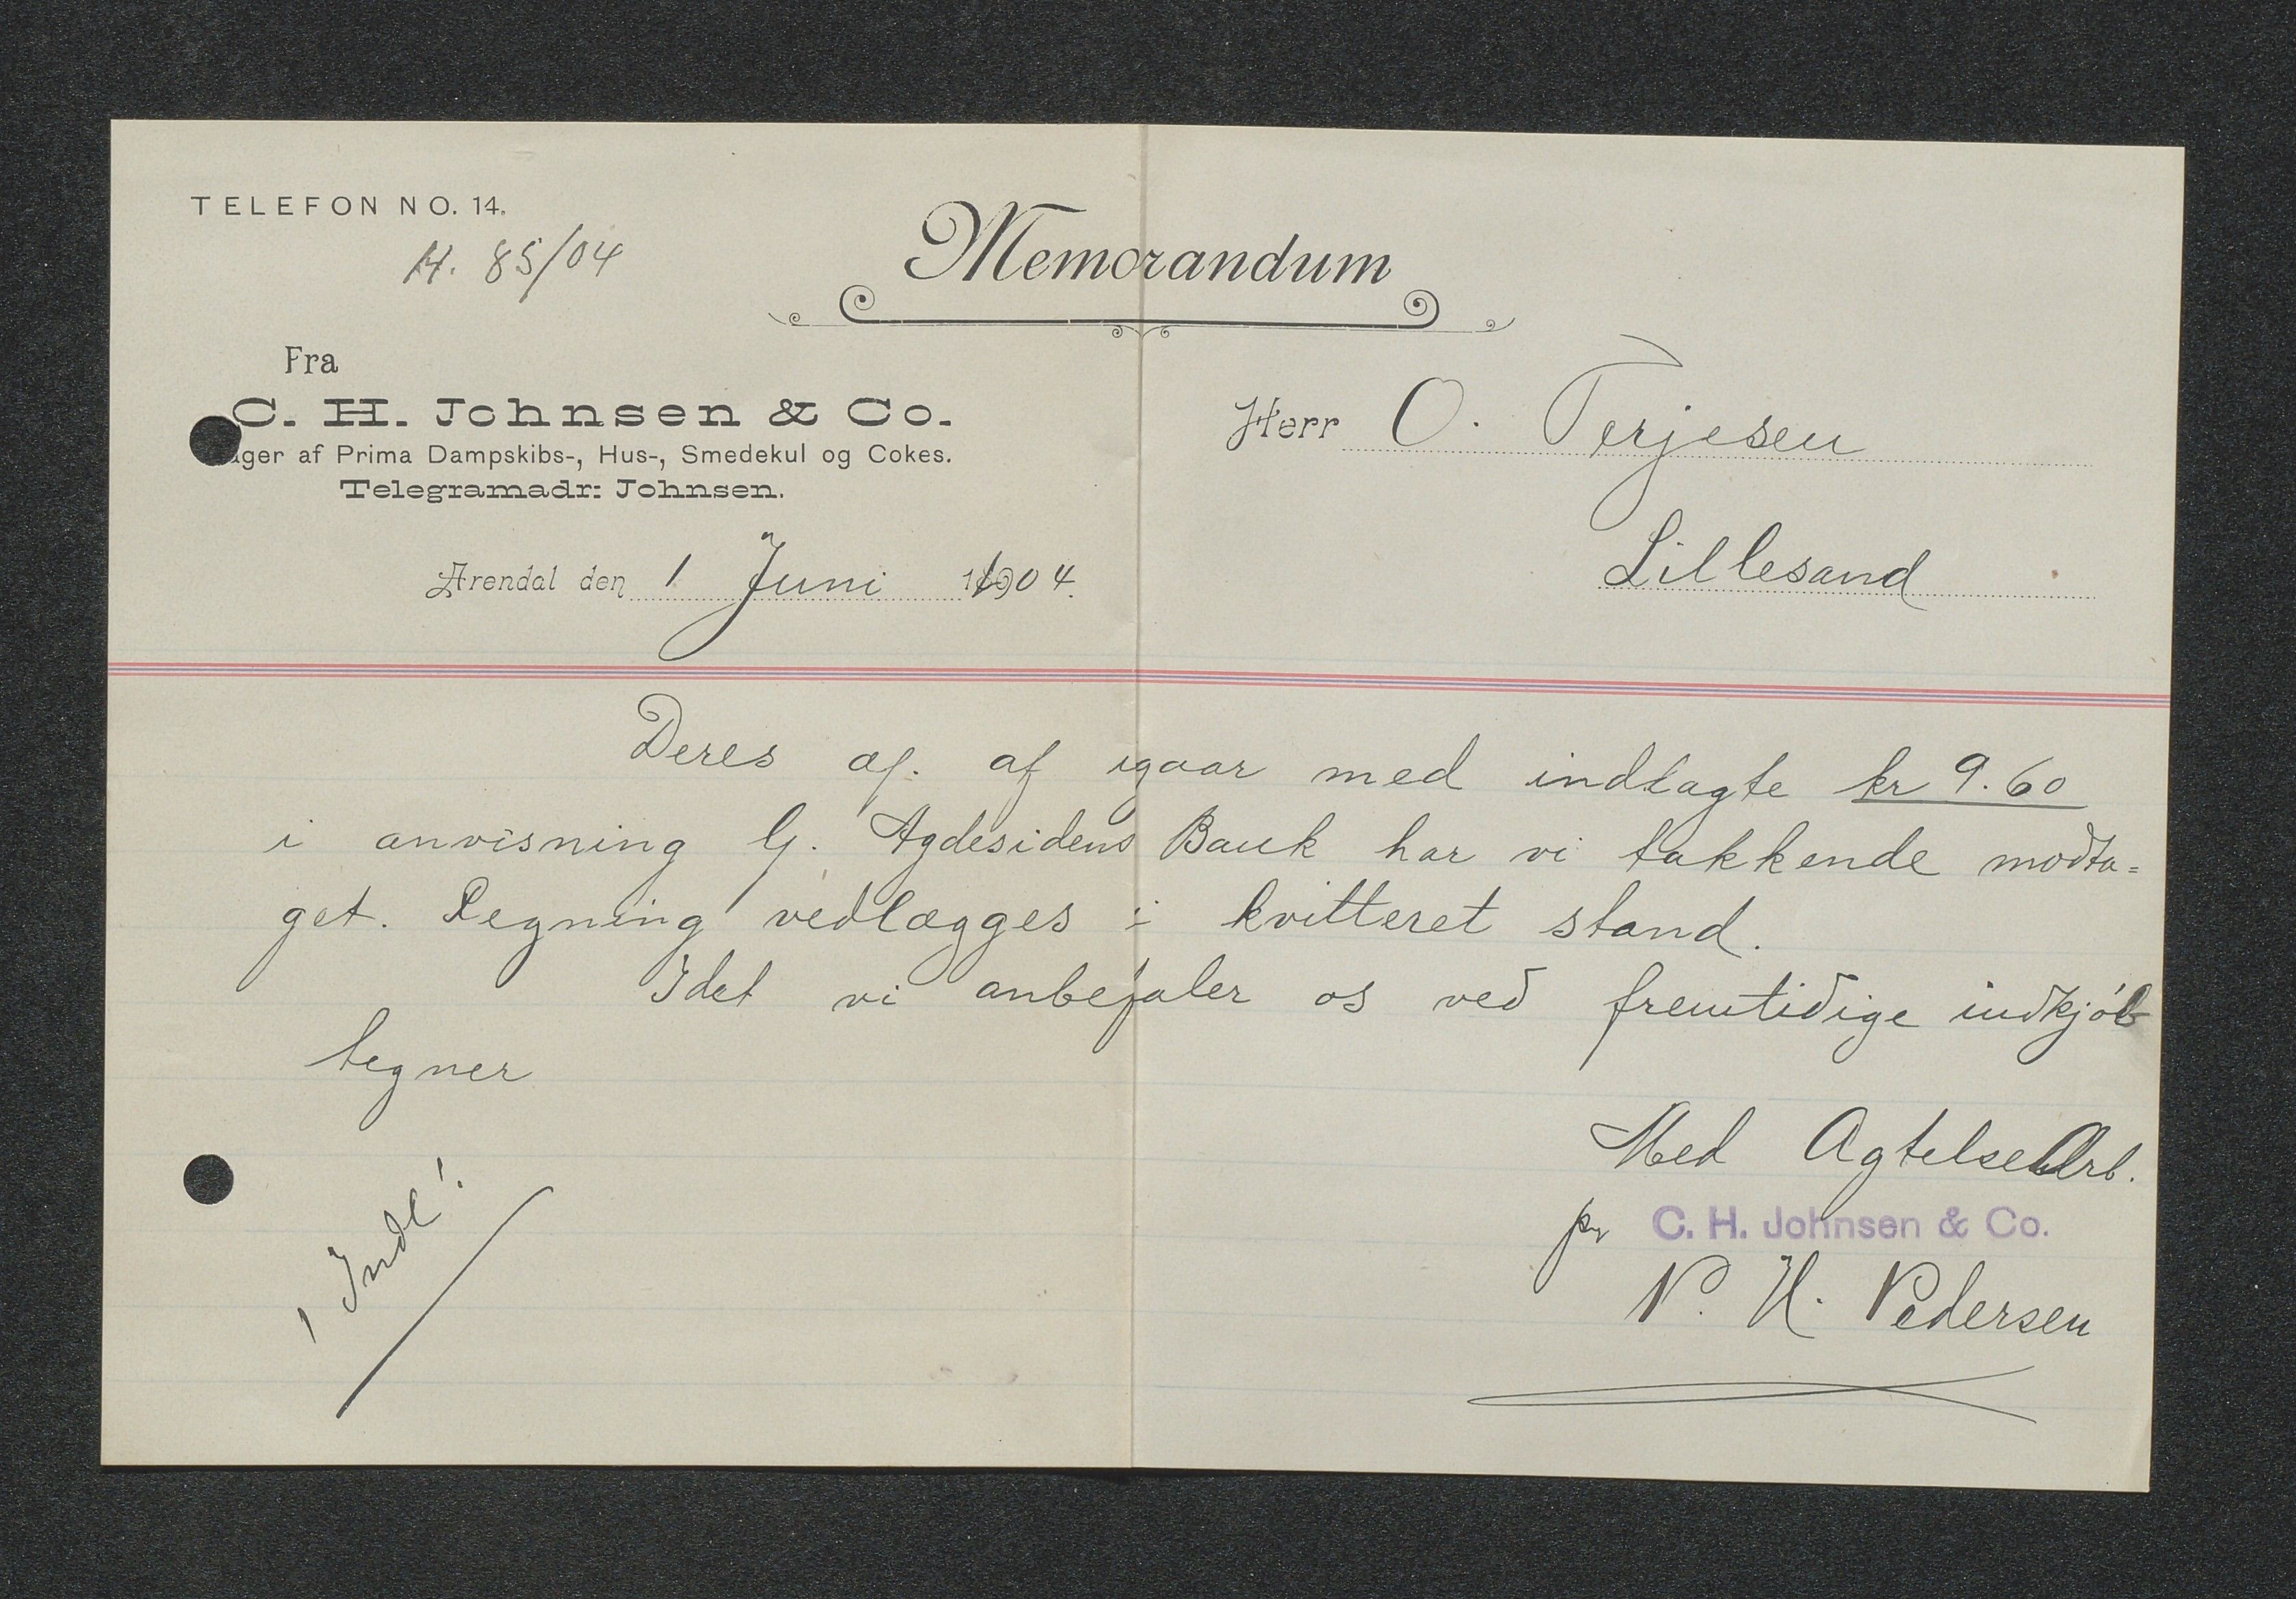 TELEFON NO. 14.
H. 85/04
Memorandum
Fra
C. H. Johnsen & Co.
ager af Prima Dampskibs-, Hus-, Smedekul og Cokes.
Telegramadr: Johnsen.
Herr O. Terjesen
Lillesand
Arendal den 1 Juni 1904.
Deres æf. af igaar med indlagte kr 9.60
i anvisning Agdesidens Bank har vi takkende modta=
get. Regning vedlægges i kvitteret stand.
Idet vi anbefaler os ved fremtidige indkjøb
tegner
Med Agtelse Arb.
pr C. H. Johnsen & Co.
N. H. Pedersen
1 Indl!